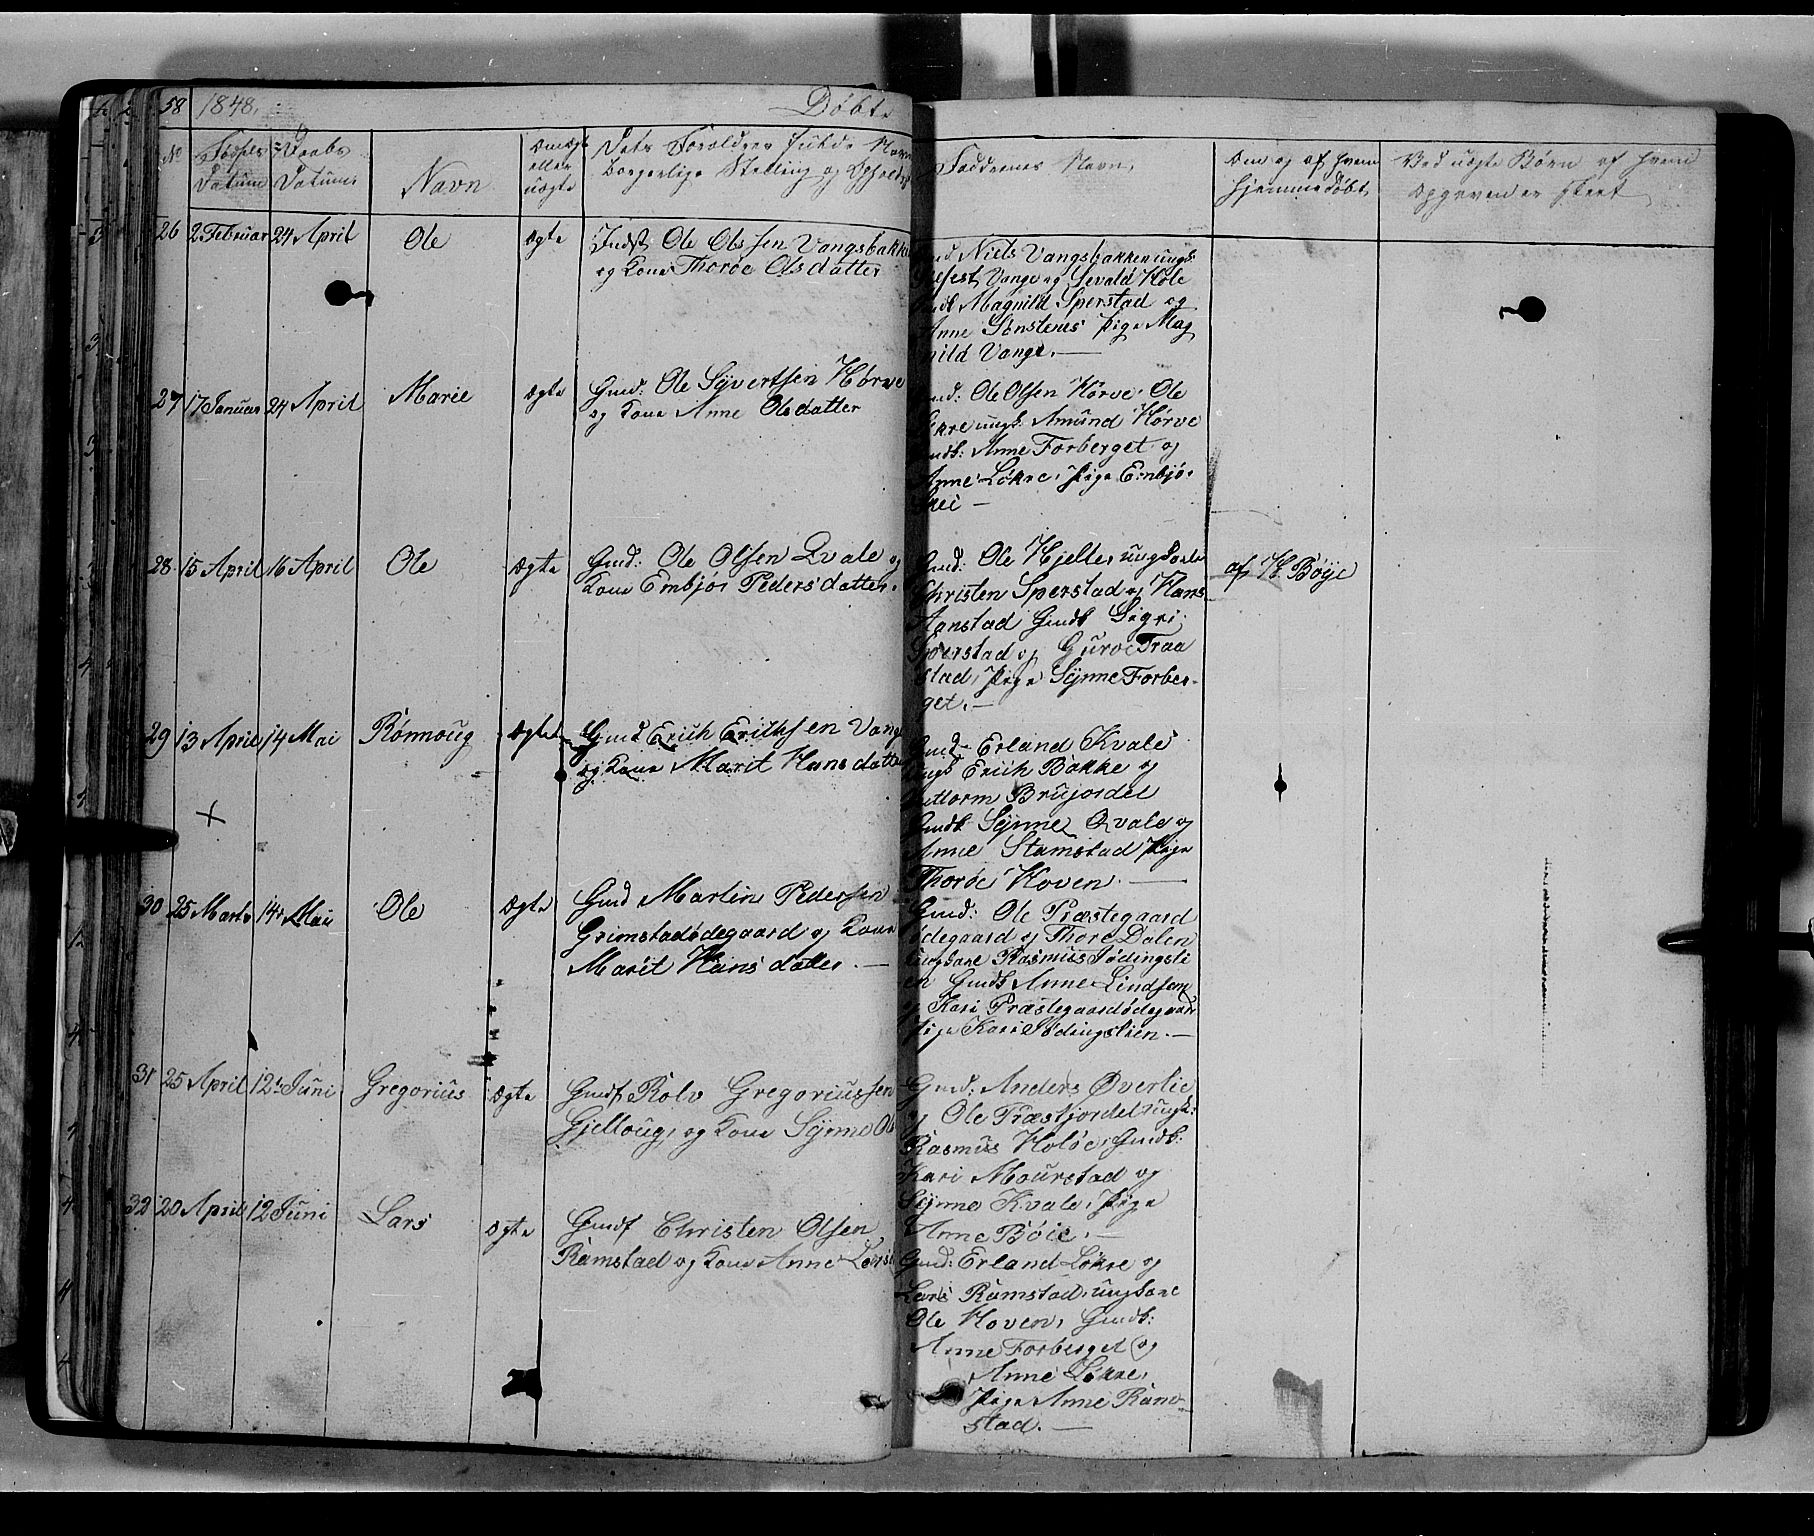 58 1848. Døbte
No
Fødsels Datum
Daabs Datum
Navn
om Ægte eller uægte
Dets Forældres fulde Navn
borgerlige Stilling og Opholdst
Faddernes Navn.
Om og af hvem
hjemmedøbt
Ved uægte Børn af hvem
Opgaven er skeet
26 2 Februar 24 April Ole Ægte Indst Ole Olssen Vangsbakke
og Kone Thorøe Olsdatter
Niels Vangsbakken ungk:
Vange og Sevald Høle
Magnild Sperstad og
Anne Sønsteus Pige Mag
nild Vange. —
27 17 Januar 24 April Marie Ægte Gmd: Ole Syvertsen Hørve
og Kone Anne Olsdatter
Ole Olsen Hørve, Ole
Løkre ungk. Amund Hørve
Gmdk: Anne Forberget og
Anne Løkre, Pige Embjø.
—
28 15 April 16 April Ole Ægte Gmd: Ole Olsen Qvale og
Kone Embjør Pedersdatter.
Gmd: Ole Hjelle, ungkarle
Christen Sperstad og Hans
Gmdk Sigri
Sperstad og Gurve Traa
stad, Pige Synne Forber-
get. —
af H. Bøye
29 13 April 14 Mai Rønnoug Ægte Gmd Erich Erichsen Vang
og Kone Marit Hansdatter
Gmd Erland Kvale
ungk Erich Bakke og
Guttorm Brujordel
Gmdk Synne Qvale og
Anne Stamstad Pige
Thorøe Hoven. —
30 25 Marts 14 Mai Ole Ægte Gmd Martin Pedersen
Grimstadødegaard og Kone
Marit Hansdatter. —
Gmd: Ole Præstegaard
ødegaard og Thore Dalen
ungkarl Rasmus Fødingsli
en Gmdk Anne Lindsem
og Kari Præstegaardødegaard
Pige Kari Fødingslien. —
31 25 April 12te Juni Gregorius Ægte Gmd Rolv Gregoriussen
Gjelloug, og Kone Synne Ols
Gmd: Anders Øverlie
og Ole Præstjordel ungk:
Rasmus Holøe, Gmdk:
Kari Mourstad og
Synne Kvale, Pige
Anne Bøie. —
32 20 April 12 Juni Lars Ægte Gmd Christen Olsen
Ramstad og Kone Anne Larsd
Gmd: Erland Løkre og
Lars Ramstad, ungkarl
Ole Hoven, Gmdk:
Anne Forberget og
Anne Løkre,
Pige Anne Ram-
stad. —